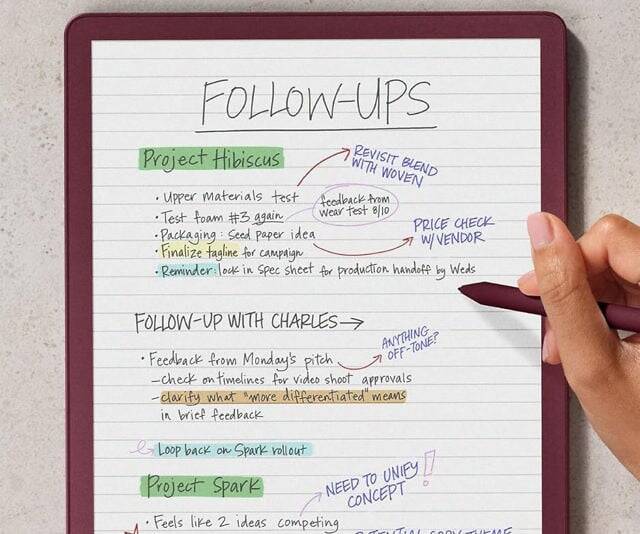 FOLLOW-UPS
Project Hibiscus
REVISIT BLEND
WITH WOVEN
• Upper materials test
• Test foam #3 again
feedback from
wear test 8/10
• Packaging: Seed paper idea
PRICE CHECK
W/VENDOR
• Finalize tagline for campaign
• Reminder: lock in spec sheet for production handoff by Weds
FOLLOW-UP WITH CHARLES →
ANYTHING
OFF-TONE?
• Feedback from Monday's pitch
– check on timelines for video shoot approvals
– clarify what "more differentiated" means
in brief feedback
Loop back on Spark rollout
Project Spark
NEED TO UNIFY
CONCEPT!
• Feels like 2 ideas competing